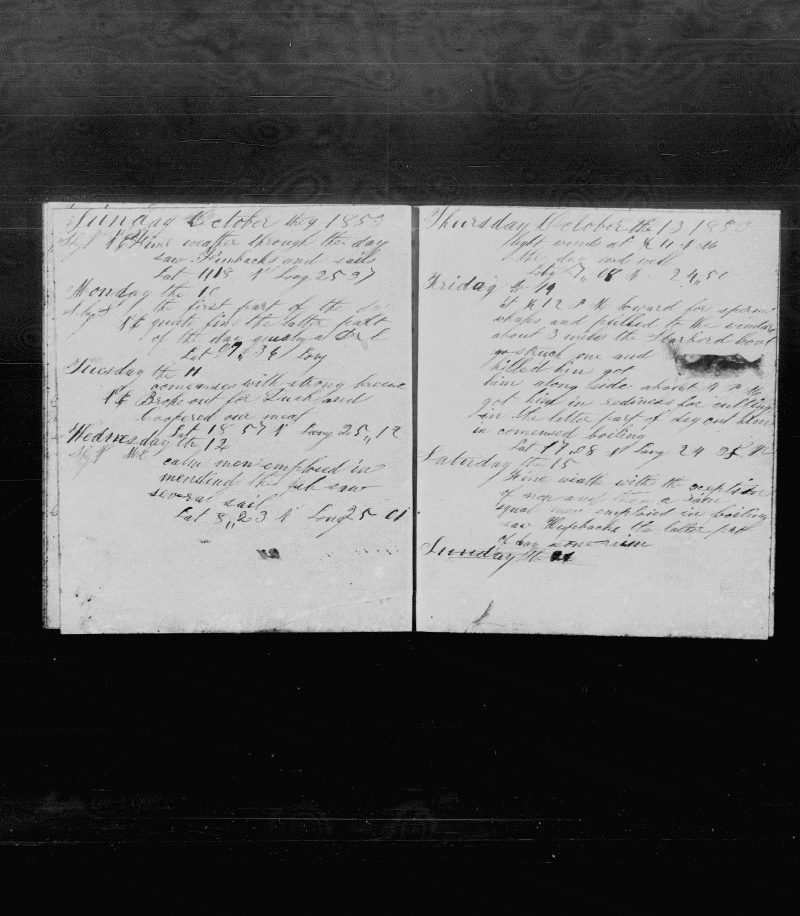 Sunday October the 9 1853
Fine weather through the day
saw Finbacks and sails
Lat 1118 N Long 25 27
Monday the 10
the first part of the day
quite fine the latter part
of the day
Lat 9 36 Long
Tuesday the 11
comenses with strong breene
Broke out for Duck and
Coopered our meat
Lat 18 57 N Long 25,, 12
Wednesday the 12
calm men emploid in
mending the jib saw
several sail
Lat 8,, 23 N Long 25 01
Thursday October the 13 1853
light winds at
the day end well
7,, 08 N 24,, 50
Friday the 14
At 12 M lowerd for sperm
whales and pulled to the windard
about 3 miles the Starbord boat
struck one and
killed him got
him along side about 4 P M
got him in rediness for cutting
in the latter part of day cut him
in comensed boiling
Lat 17,, 28 N Long 24 35 W
Saturday the 15
Fine weath with the exception
of now and then a rain
squal men emploied in boiling
saw Humpbacks the latter part
of day some rain
Sunday the